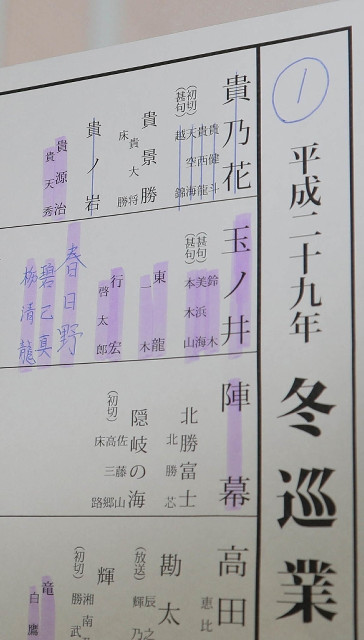 1
平成二十九年
冬巡業
貴乃花
貴健斗
貴西龍
天空海
越錦
(初切)
(甚句)
貴景勝
貴大将
床勝
貴ノ岩
貴源治
貴天秀
玉ノ井
鈴木
美浜海
本木山
(甚句)
(甚句)
東龍
一木
行宏
啓太郎
春日野
碧己真
栃清龍
陣幕
北勝富士
北勝芯
隠岐の海
佐藤山
高三郷
床路
(初切)
高田
恵比
勘太
辰之
輝乃
(放送)
輝
湘南
勝武
(初切)
竜
白鷹